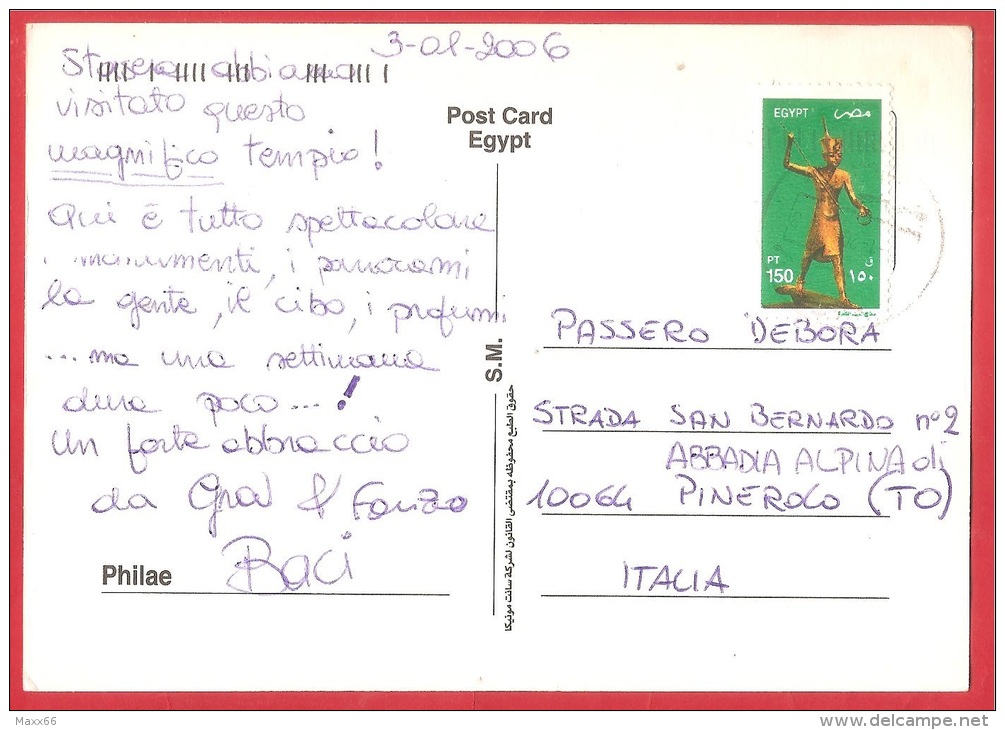 3-01-2006
Stasera abbiamo
visitato questo
magnifico tempio!
Qui è tutto spettacolare
i monumenti, i panorami
la gente, il cibo, i profumi
... ma una settimana
dura poco...!
Un forte abbraccio
da & Fonzo
Baci
Philae
Post Card
Egypt
S.M.
حقوق الطبع محفوظه بمقتضى القانون لشركة سانت مونيكا
EGYPT مصر
PT
150
ق
١٥٠
PASSERO DEBORA
STRADA SAN BERNARDO n°2
ABBADIA ALPINA di
10064 PINEROLO (TO)
ITALIA
Maxx66
www.delcampe.net